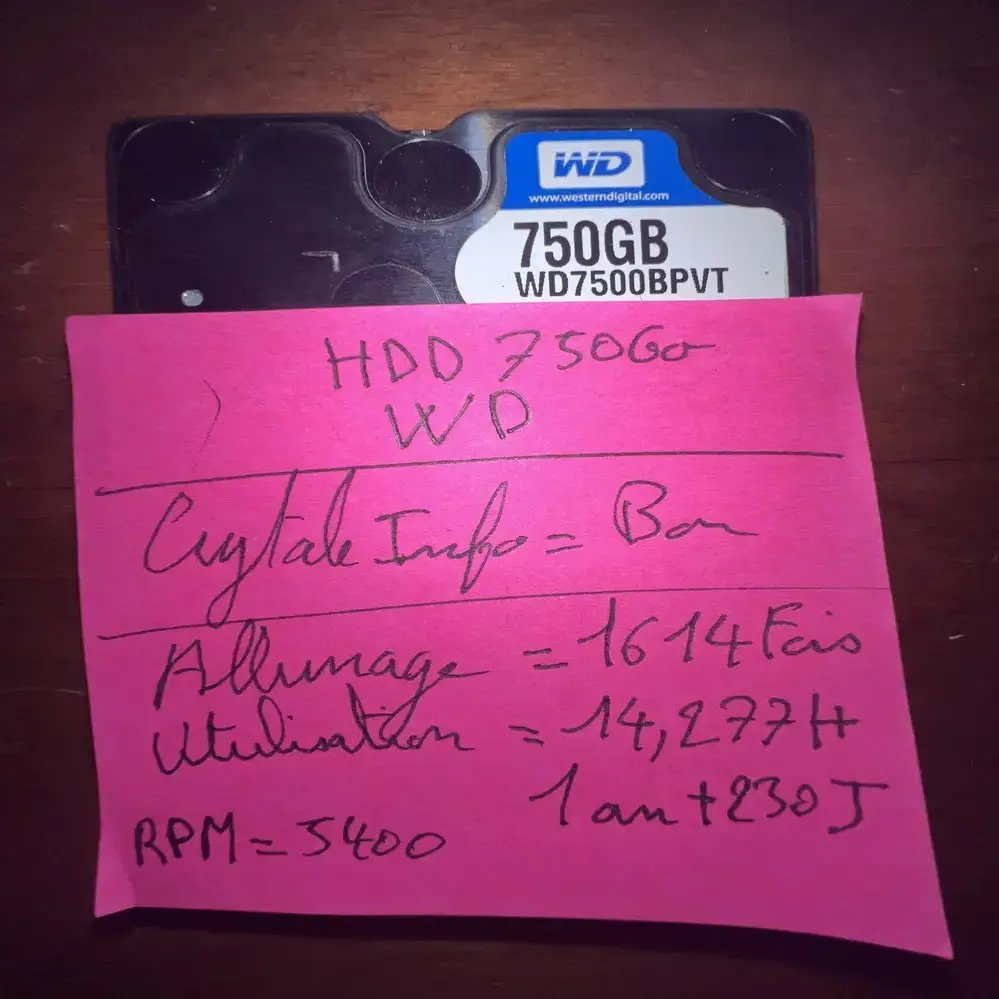 WD
www.westerndigital.com
750GB
WD7500BPVT
HDD 750Go
WD
Crytale Info = Bon
Allumage = 1614 Fois
Utulisation = 14,277H
1 an + 230J
RPM = 5400